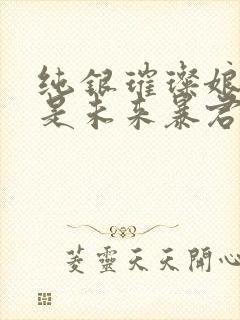 纯银璀璨娘
是未来暴君
菱靈天天開心